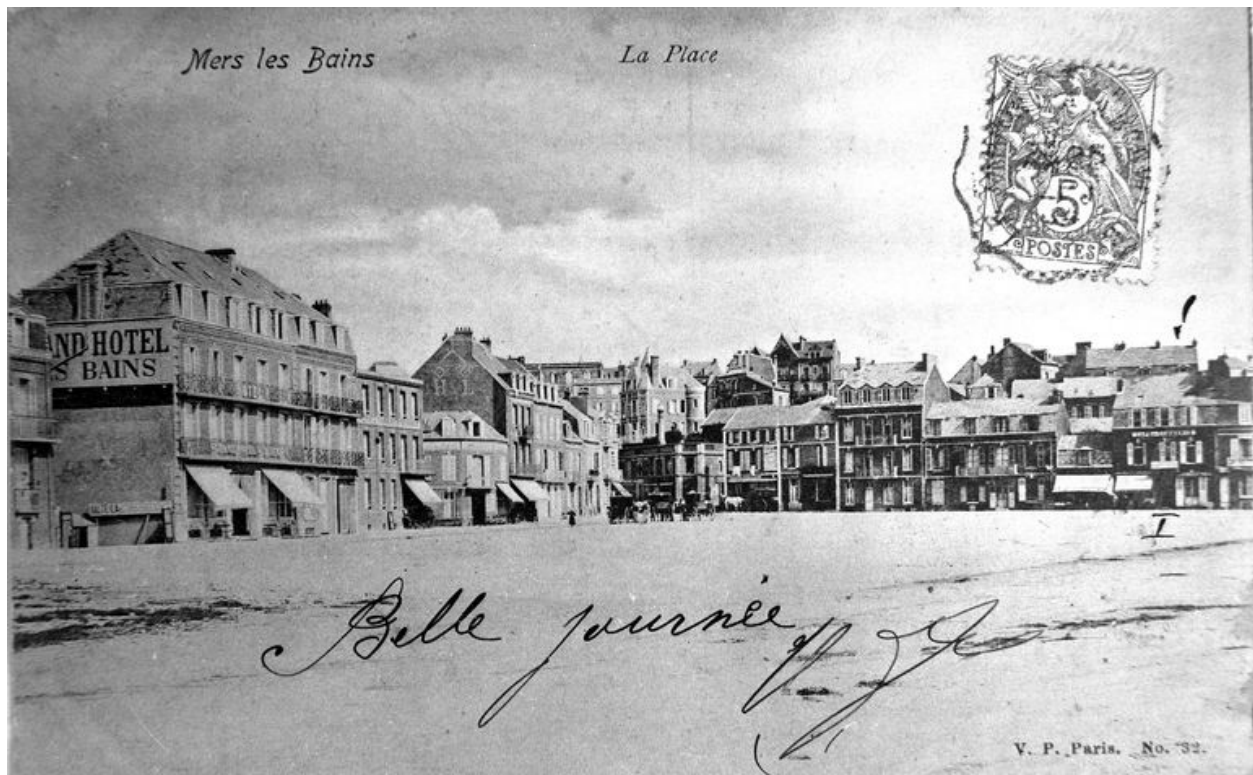 Mers les Bains
La Place
5c
POSTES
AND HOTEL
S BAINS
Belle journée
I
V. P. Paris. No. 32.